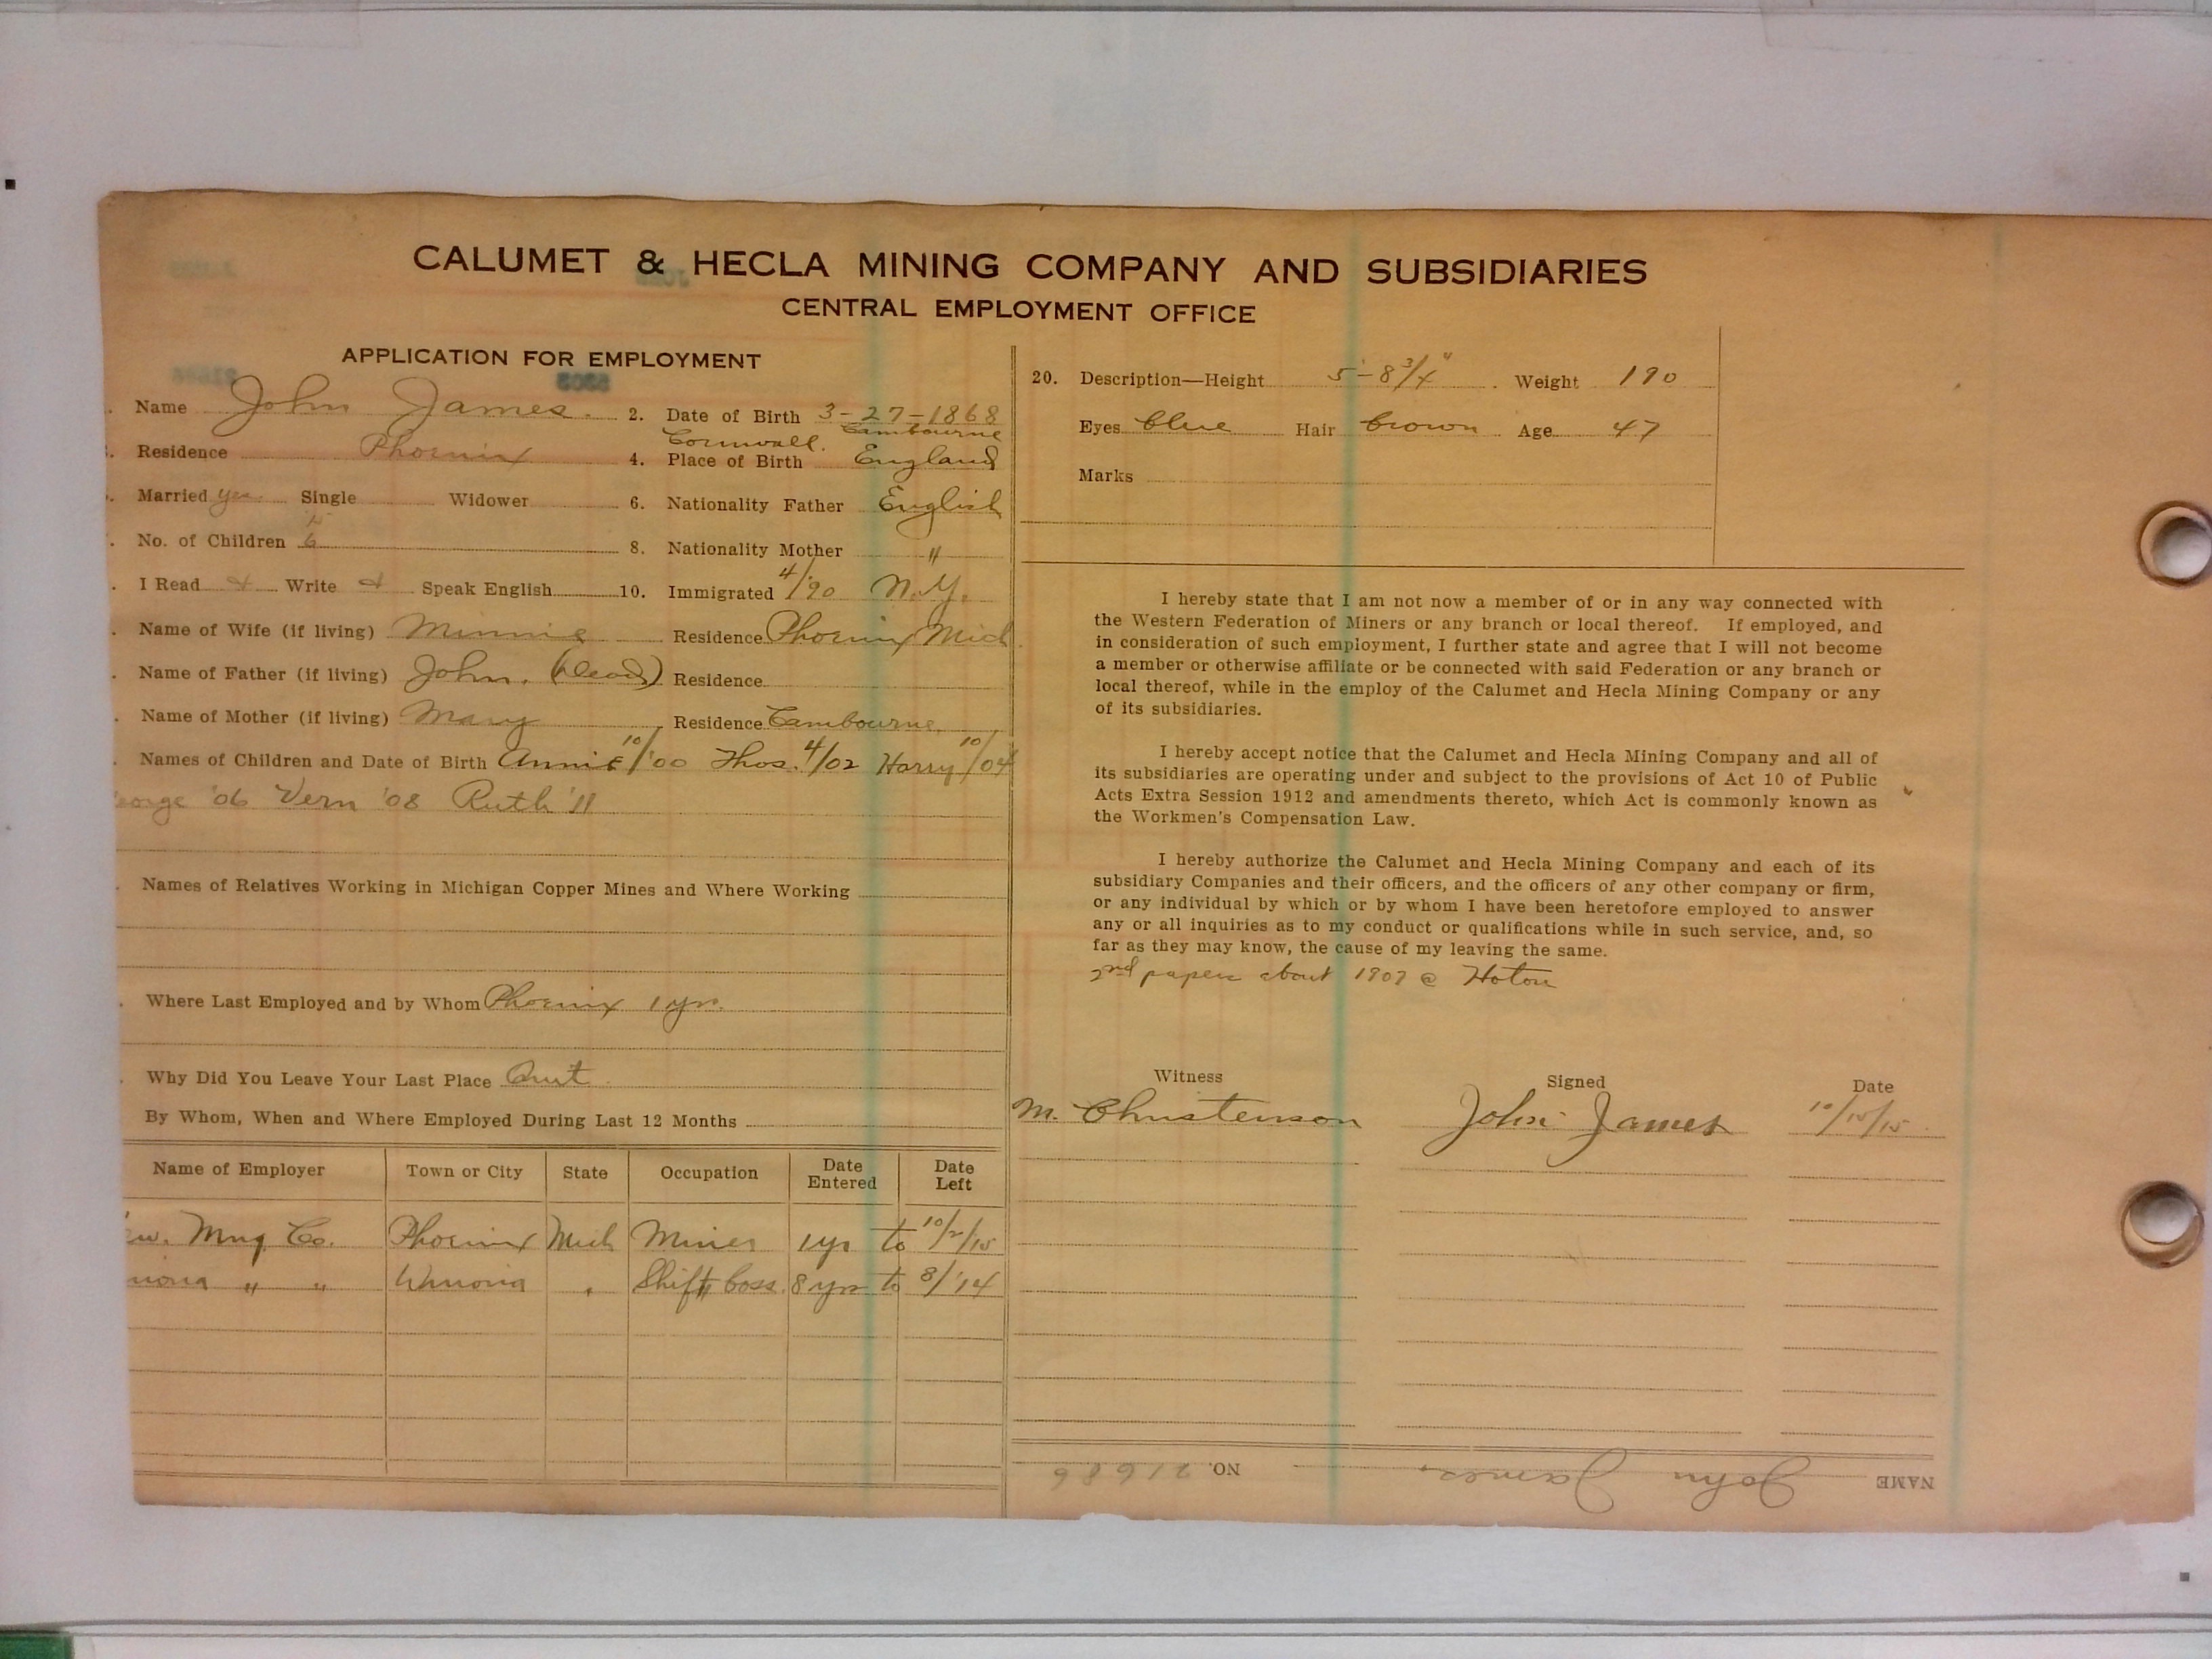 CALUMET & HECLA MINING COMPANY AND SUBSIDIARIES
CENTRAL EMPLOYMENT OFFICE
APPLICATION FOR EMPLOYMENT
Name John James. 2. Date of Birth 3-27-1868
Cornwall. Cambourne
Residence Phoenix 4. Place of Birth England
Married yes Single Widower 6. Nationality Father English
No. of Children 6 8. Nationality Mother "
I Read & Write & Speak English 10. Immigrated 4/'90 N.Y.
Name of Wife (if living) Minnie Residence Phoenix Mich
Name of Father (if living) John. (dead) Residence
Name of Mother (if living) Mary Residence Cambourne
Names of Children and Date of Birth Annie 10/'00 Thos. 4/02 Harry 10/04
eorge '06 Vern '08 Ruth '11
Names of Relatives Working in Michigan Copper Mines and Where Working
Where Last Employed and by Whom Phoenix 1 yr.
Why Did You Leave Your Last Place Quit
By Whom, When and Where Employed During Last 12 Months
Name of Employer Town or City State Occupation Date Entered Date Left
w. Mng Co. Phoenix Mich Miner 1 yr to 10/2/15
nona " " Winona " Shift boss 8 yrs to 8/'14
20. Description—Height 5-8 3/4" Weight 190
Eyes blue Hair brown Age 47
Marks
I hereby state that I am not now a member of or in any way connected with
the Western Federation of Miners or any branch or local thereof. If employed, and
in consideration of such employment, I further state and agree that I will not become
a member or otherwise affiliate or be connected with said Federation or any branch or
local thereof, while in the employ of the Calumet and Hecla Mining Company or any
of its subsidiaries.
I hereby accept notice that the Calumet and Hecla Mining Company and all of
its subsidiaries are operating under and subject to the provisions of Act 10 of Public
Acts Extra Session 1912 and amendments thereto, which Act is commonly known as
the Workmen's Compensation Law.
I hereby authorize the Calumet and Hecla Mining Company and each of its
subsidiary Companies and their officers, and the officers of any other company or firm,
or any individual by which or by whom I have been heretofore employed to answer
any or all inquiries as to my conduct or qualifications while in such service, and, so
far as they may know, the cause of my leaving the same.
2nd papers about 1907 @ Hoton
Witness Signed Date
M. Christenson John James 10/15/15
NAME John James. NO. 21686